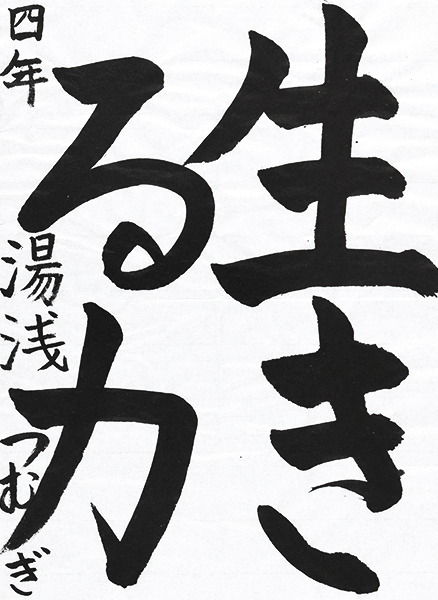 生き
る力
四年 湯浅つむぎ